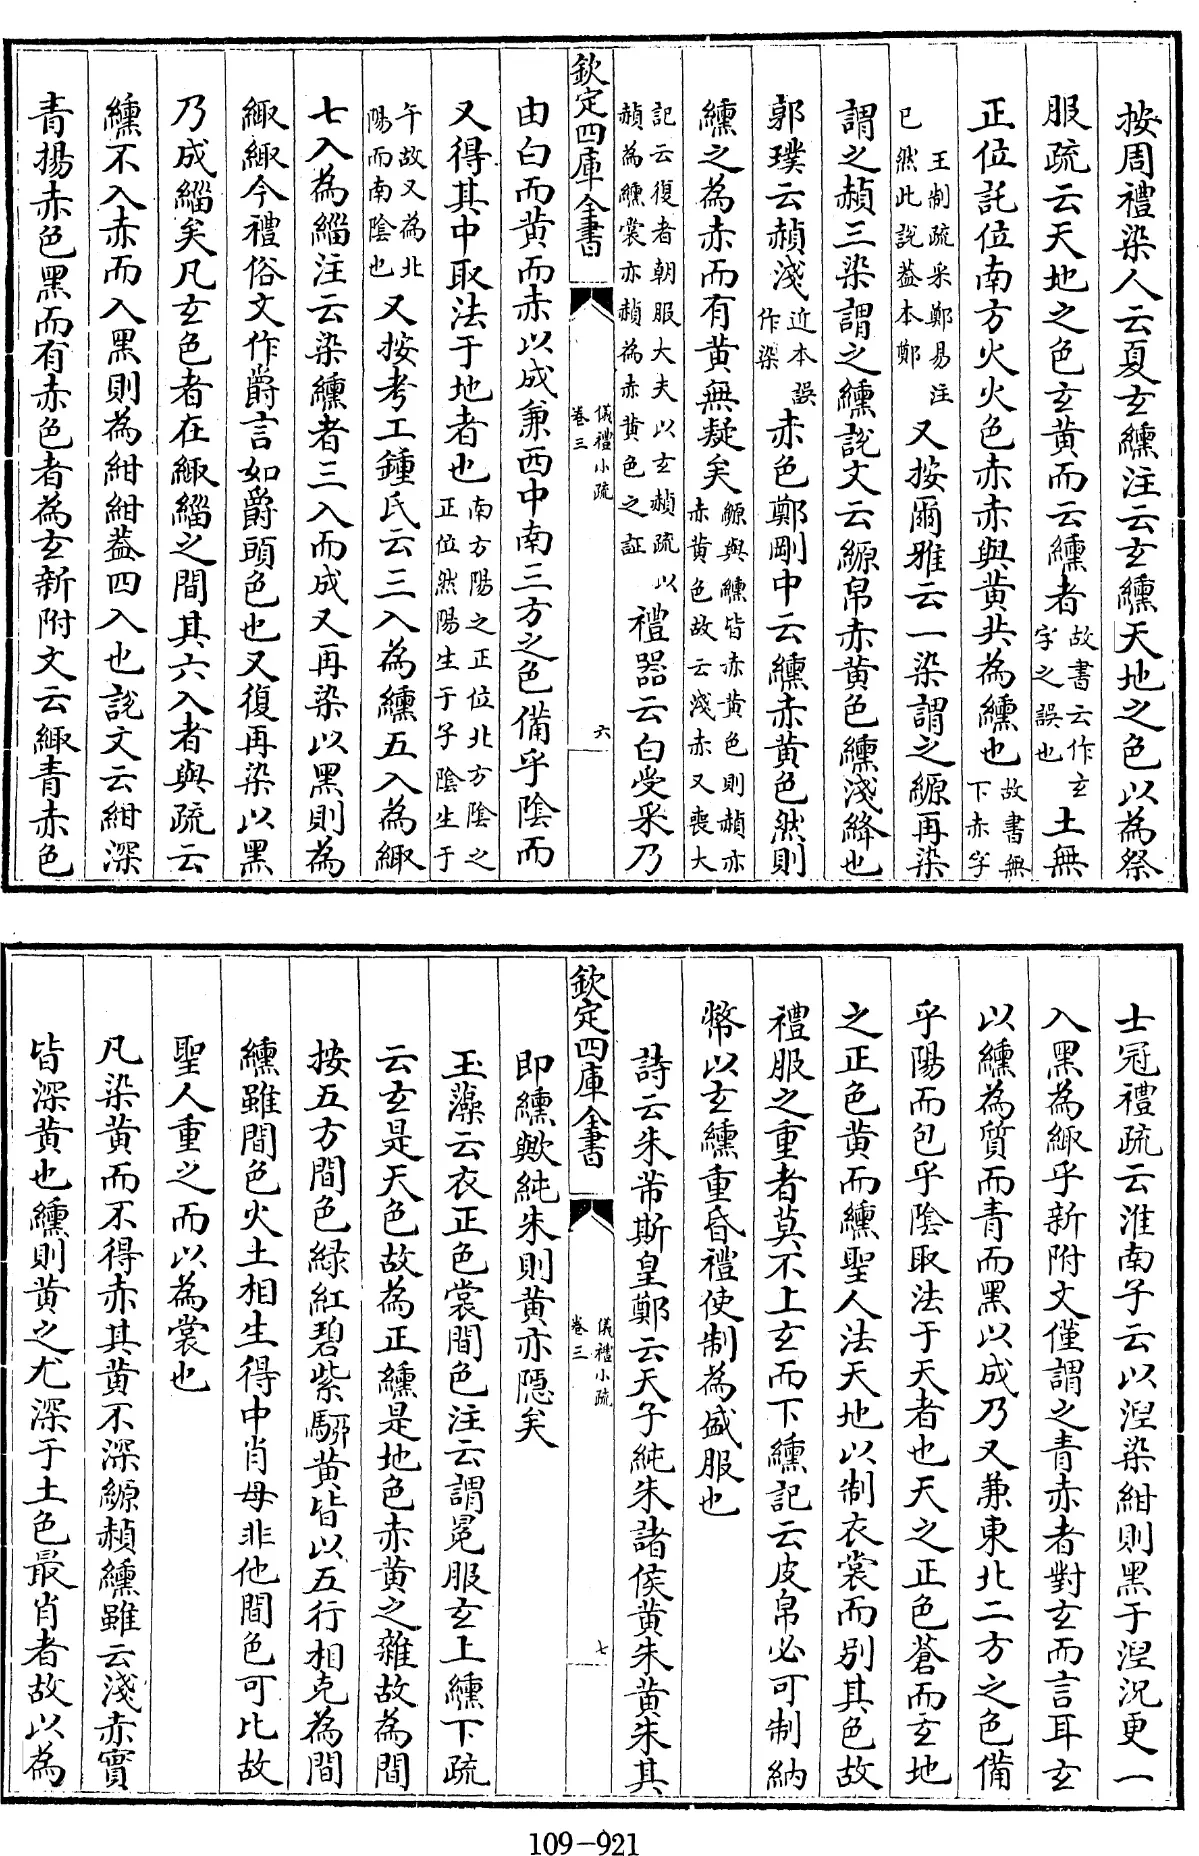 按周禮染人云夏玄纁注云玄纁天地之色以為祭
服疏云天地之色玄黄而云纁者故書云作玄字之誤也土無
正位託位南方火火色赤赤與黄共為纁也故書無下赤字
王制疏采鄭易注已然此説葢本鄭又按爾雅云一染謂之縓再染
謂之赬三染謂之纁説文云縓帛赤黄色纁淺絳也
郭璞云赬淺近本誤作染赤色鄭剛中云纁赤黄色然則
纁之為赤而有黄無疑矣縓與纁皆赤黄色則赬亦赤黄色故云淺赤又喪大
記云復者朝服大夫以玄赬疏以赬為纁裳亦赬為赤黄色之証禮器云白受采乃
欽定四庫全書 儀禮小疏 卷三 六
由白而黄而赤以成兼西中南三方之色備乎陰而
又得其中取法于地者也南方陽之正位北方陰之正位然陽生于子陰生于
午故又為北陽而南陰也又按考工鍾氏云三入為纁五入為緅
七入為緇注云染纁者三入而成又再染以黑則為
緅緅今禮俗文作爵言如爵頭色也又復再染以黑
乃成緇矣凡玄色者在緅緇之間其六入者與疏云
纁不入赤而入黑則為紺紺葢四入也説文云紺深
青揚赤色黑而有赤色者為玄新附文云緅青赤色
士冠禮疏云淮南子云以涅染紺則黑于涅況更一
入黑為緅乎新附文僅謂之青赤者對玄而言耳玄
以纁為質而青而黑以成乃又兼東北二方之色備
乎陽而包乎陰取法于天者也天之正色蒼而玄地
之正色黄而纁聖人法天地以制衣裳而别其色故
禮服之重者莫不上玄而下纁記云皮帛必可制納
幣以玄纁重昏禮使制為盛服也
詩云朱芾斯皇鄭云天子純朱諸侯黄朱黄朱其
欽定四庫全書 儀禮小疏 卷三 七
即纁歟純朱則黄亦隱矣
玉藻云衣正色裳間色注云謂冕服玄上纁下疏
云玄是天色故為正纁是地色赤黄之雜故為間
按五方間色緑紅碧紫騮黄皆以五行相克為間
纁雖間色火土相生得中肖母非他間色可比故
聖人重之而以為裳也
凡染黄而不得赤其黄不深縓赬纁雖云淺赤實
皆深黄也纁則黄之尤深于土色最肖者故以為
109-921